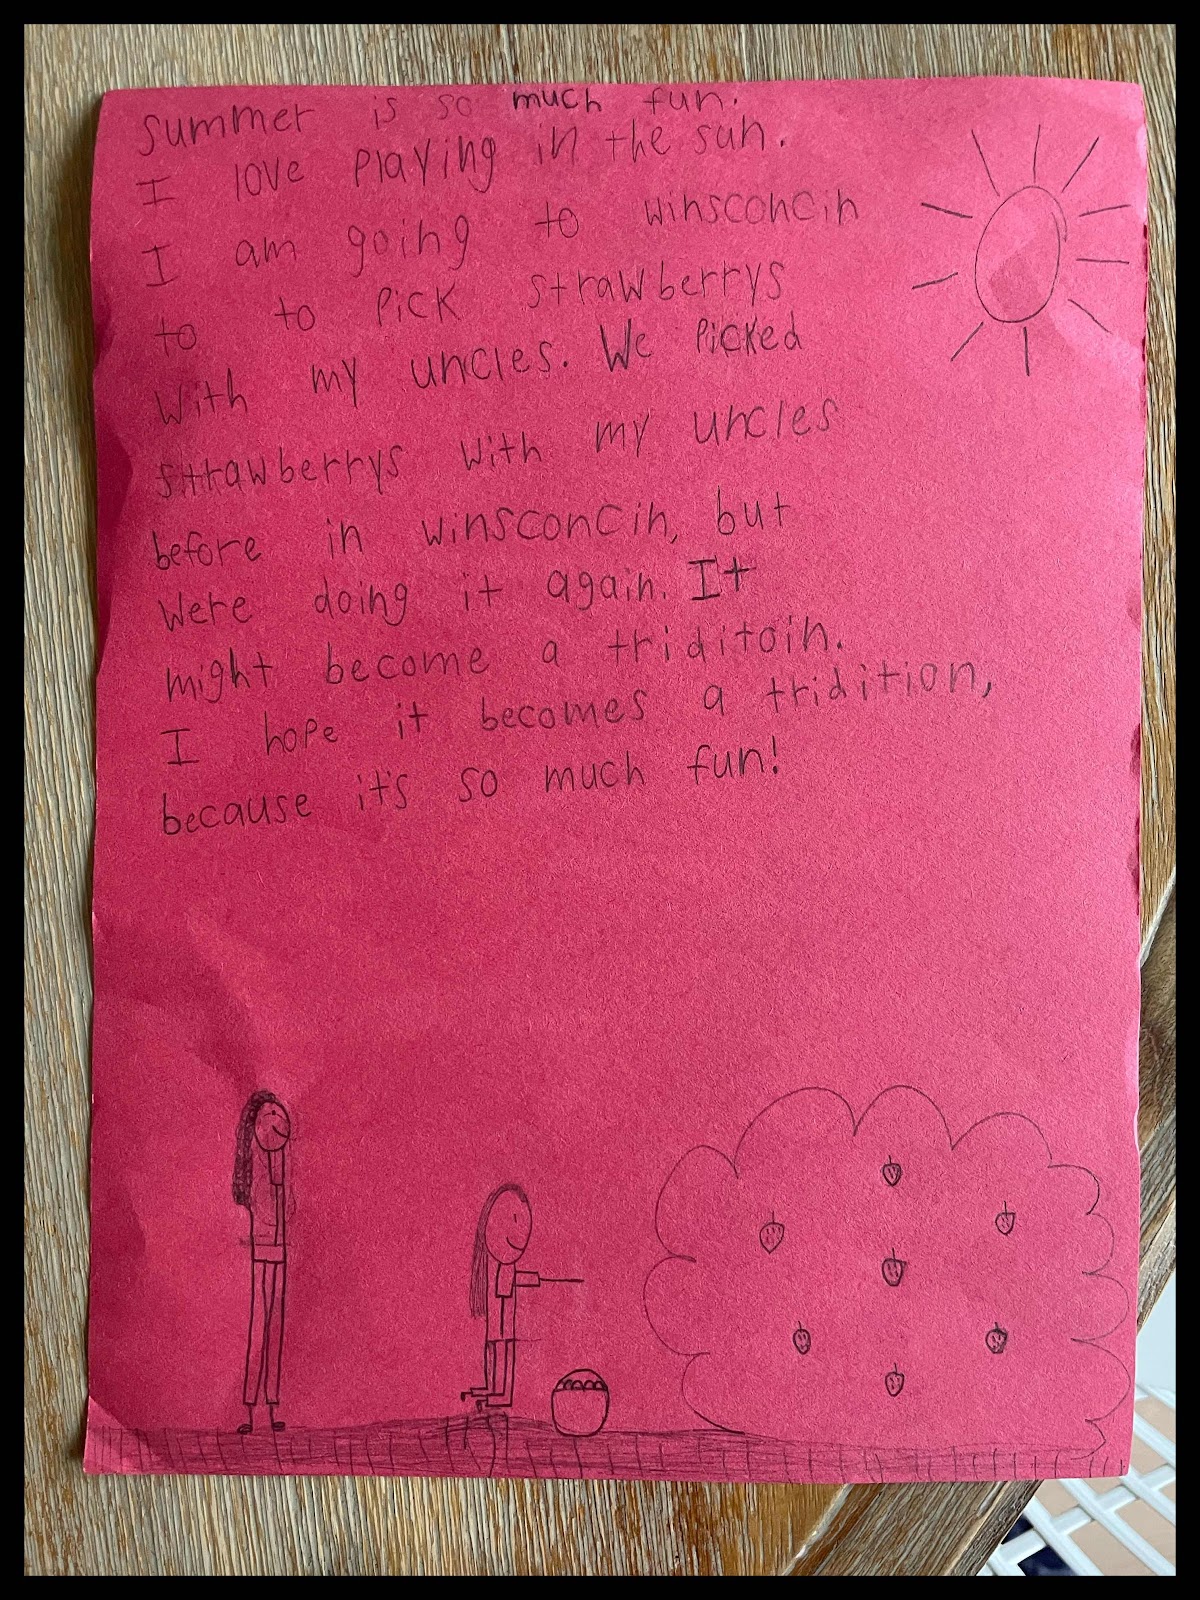 Summer is so much fun.
I love playing in the sun.
I am going to winsconcin
to to pick strawberrys
with my uncles. We picked
strawberrys with my uncles
before in winsconcin, but
were doing it again. It
might become a triditoin.
I hope it becomes a tridition,
because it's so much fun!